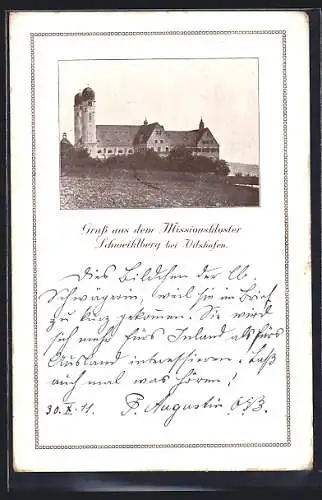 Gruß aus dem Missionskloster
Schweiklberg bei Vilshofen.
Dies Bildchen der lb.
Schwägerin, weil sie im Brief
zu kurz gekommen. Sie wird
sich mehr fürs Inland als fürs
Ausland interessieren. Laß
auch mal was hören!
30.X.11. P. Augustin